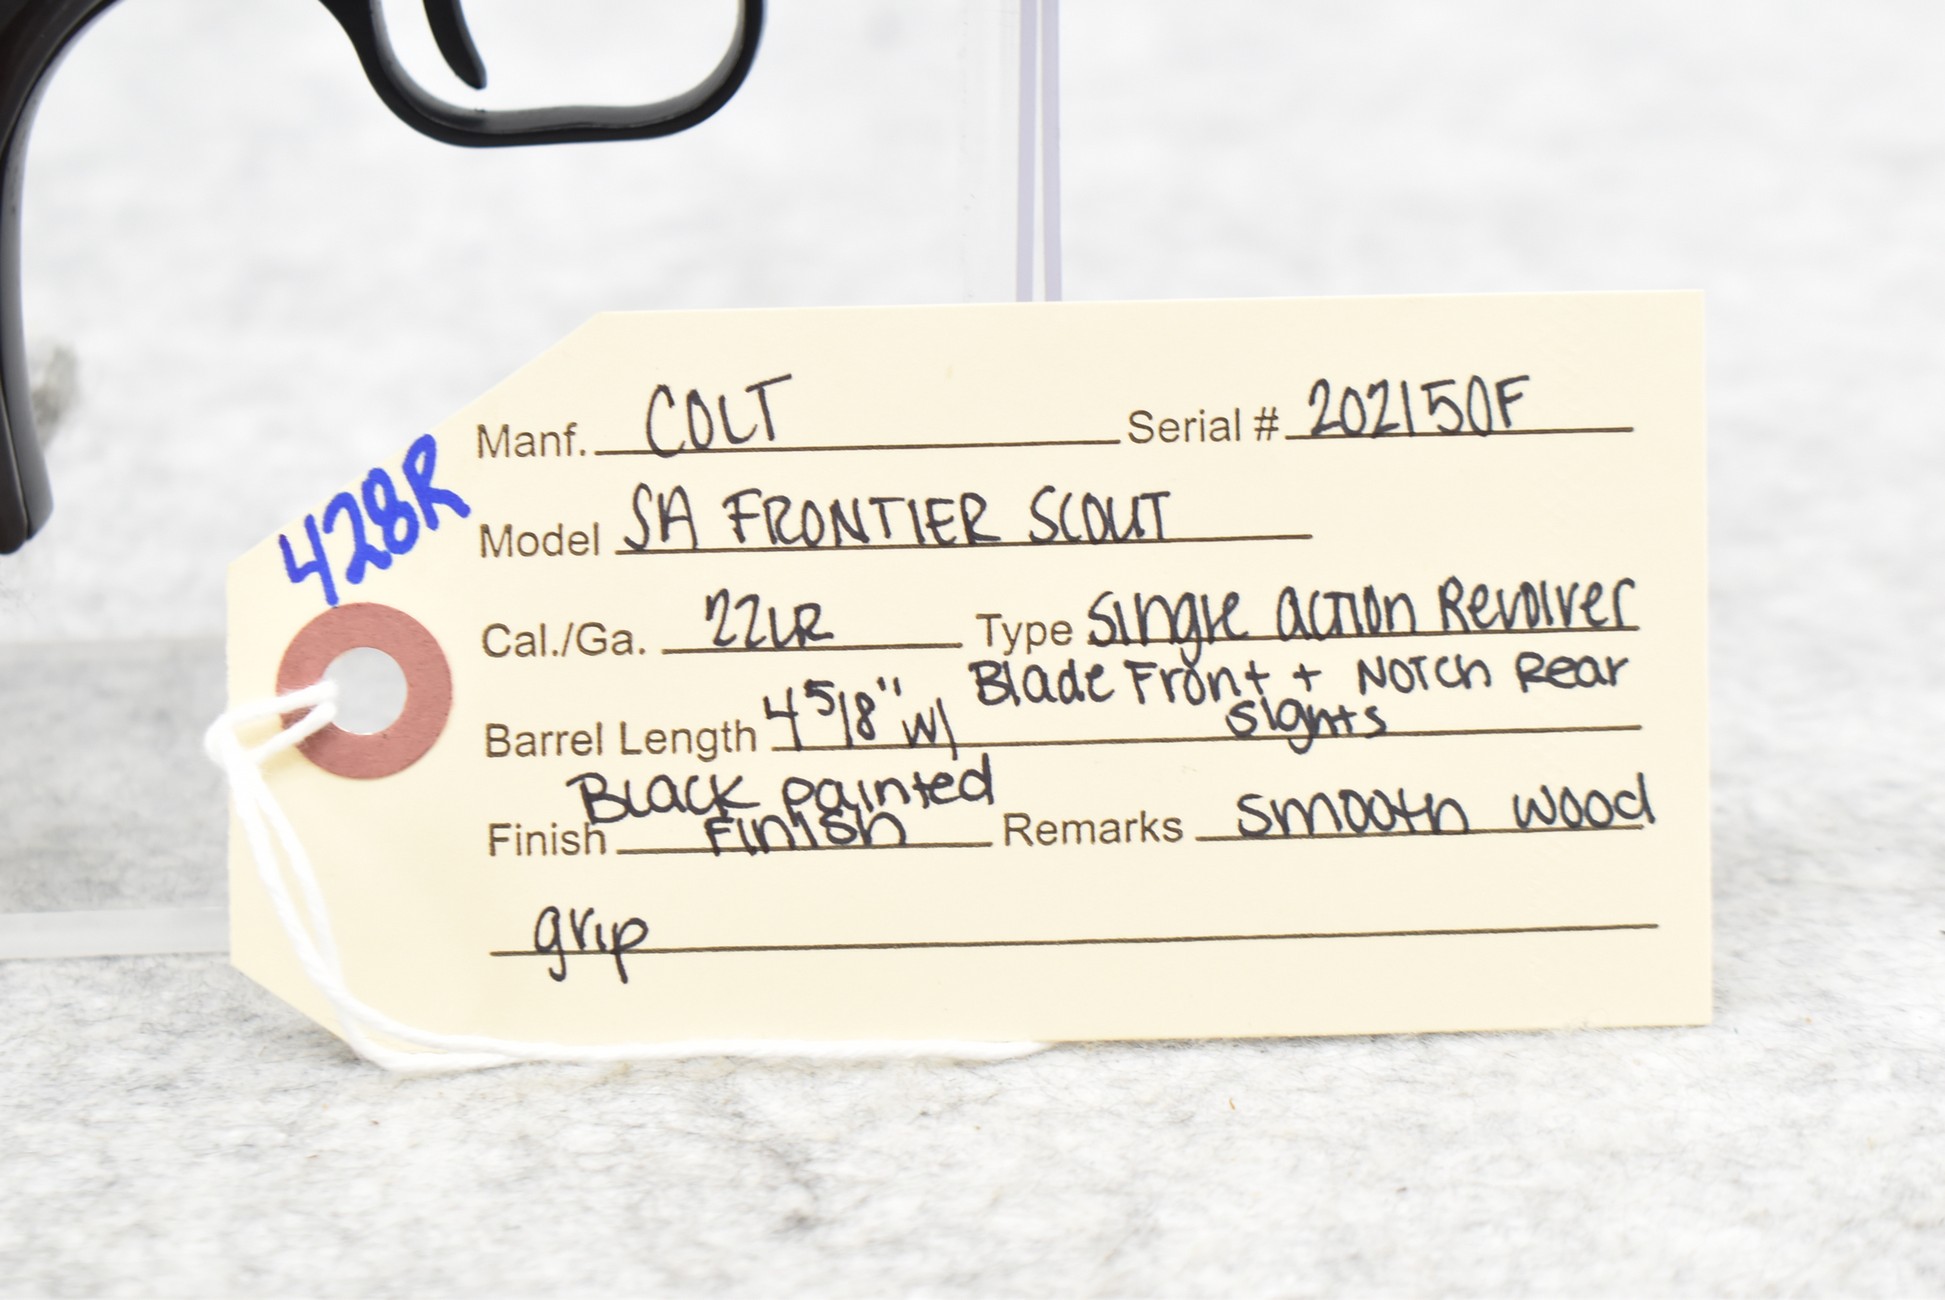 428R
Manf. COLT Serial # 202150F
Model SA FRONTIER SCOUT
Cal./Ga. 22LR Type Single action Revolver
Barrel Length 4 5/8" w/ Blade Front + Notch Rear
sights
Black painted
Finish Finish Remarks smooth wood
grip